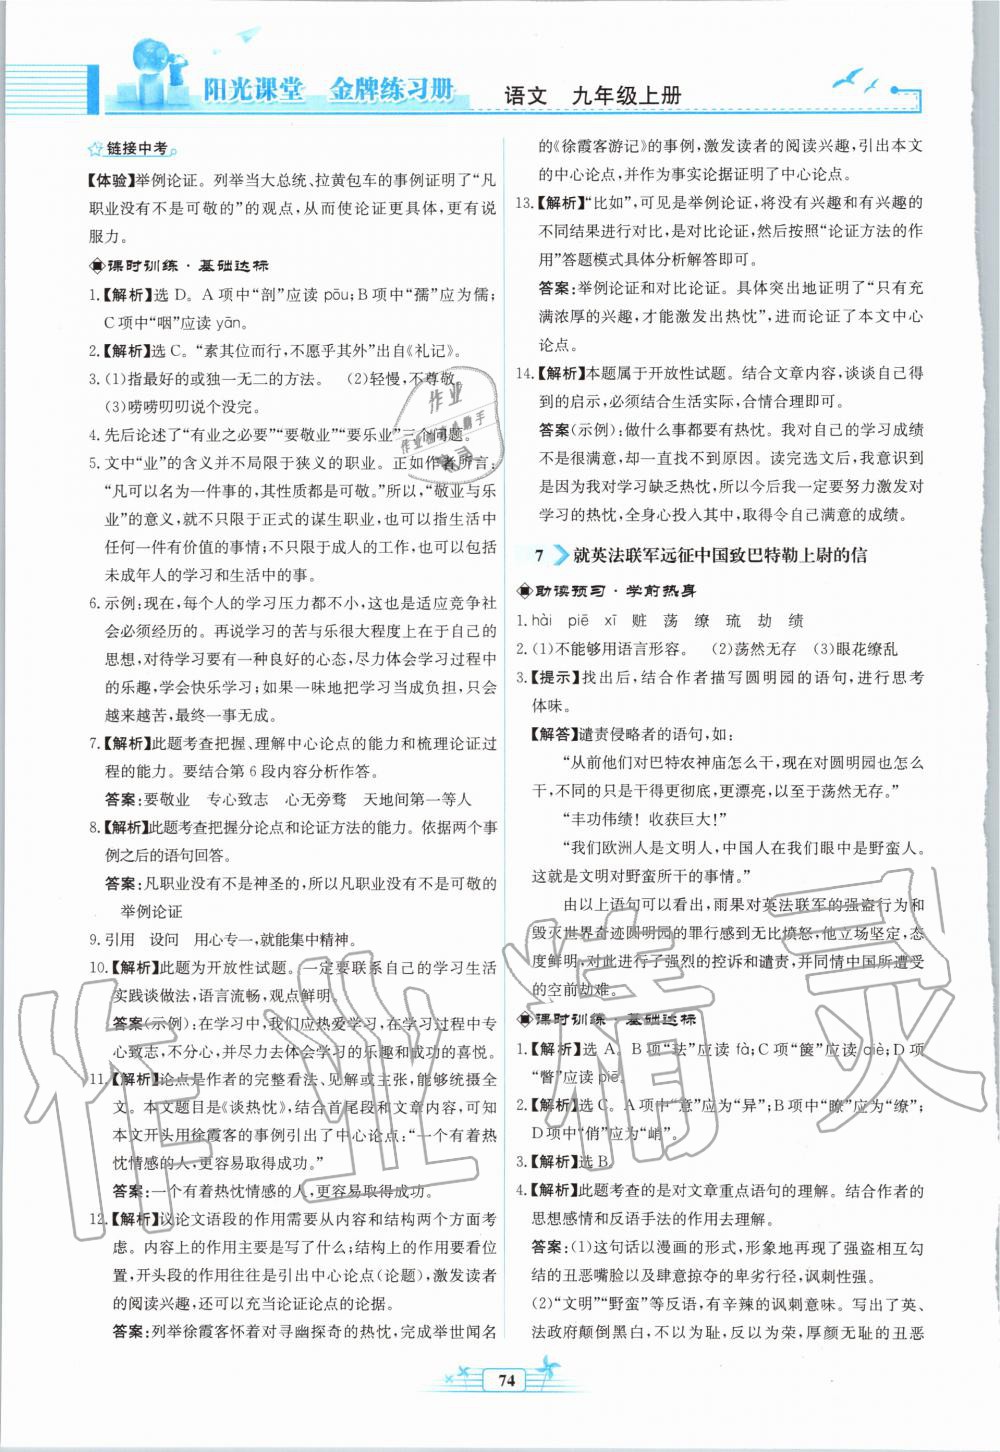 阳光课堂 金牌练习册 语文 九年级上册
链接中考
【体验】举例论证。列举当大总统、拉黄包车的事例证明了“凡
职业没有不是可敬的”的观点,从而使论证更具体,更有说
服力。
课时训练·基础达标
1.【解析】选 D。A 项中“剖”应读 pōu;B 项中“孺”应为儒;
C 项中“咽”应读 yān。
2.【解析】选 C。“素其位而行,不愿乎其外”出自《礼记》。
3. (1)指最好的或独一无二的方法。 (2)轻慢,不尊敬。
(3)唠唠叨叨说个没完。
4. 先后论述了“有业之必要”“要敬业”“要乐业”三个问题。
5. 文中“业”的含义并不局限于狭义的职业。正如作者所言:
“凡可以名为一件事的,其性质都是可敬。”所以,“敬业与乐
业”的意义,就不只限于正式的谋生职业,也可以指生活中
任何一件有价值的事情;不只限于成人的工作,也可以包括
未成年人的学习和生活中的事。
6. 示例:现在,每个人的学习压力都不小,这也是适应竞争社
会必须经历的。再说学习的苦与乐很大程度上在于自己的
思想,对待学习要有一种良好的心态,尽力体会学习过程中
的乐趣,学会快乐学习;如果一味地把学习当成负担,只会
越来越苦,最终一事无成。
7.【解析】此题考查把握、理解中心论点的能力和梳理论证过
程的能力。要结合第 6 段内容分析作答。
答案:要敬业 专心致志 心无旁骛 天地间第一等人
8.【解析】此题考查把握分论点和论证方法的能力。依据两个事
例之后的语句回答。
答案:凡职业没有不是神圣的,所以凡职业没有不是可敬的
举例论证
9. 引用 设问 用心专一,就能集中精神。
10.【解析】此题为开放性试题。一定要联系自己的学习生活
实践谈做法,语言流畅,观点鲜明。
答案(示例):在学习中,我们应热爱学习,在学习过程中专
心致志,不分心,并尽力去体会学习的乐趣和成功的喜悦。
11.【解析】论点是作者的完整看法、见解或主张,能够统摄全
文。本文题目是《谈热忱》,结合首尾段和文章内容,可知
本文开头用徐霞客的事例引出了中心论点:“一个有着热
忱情感的人,更容易取得成功。”
答案:一个有着热忱情感的人,更容易取得成功。
12.【解析】议论文语段的作用需要从内容和结构两个方面考
虑。内容上的作用主要是写了什么;结构上的作用要看位
置,开头段的作用往往是引出中心论点(论题),激发读者
的阅读兴趣,还可以充当论证论点的论据。
答案:列举徐霞客怀着对寻幽探奇的热忱,完成举世闻名
的《徐霞客游记》的事例,激发读者的阅读兴趣,引出本文
的中心论点,并作为事实论据证明了中心论点。
13.【解析】“比如”,可见是举例论证,将没有兴趣和有兴趣的
不同结果进行对比,是对比论证,然后按照“论证方法的作
用”答题模式具体分析解答即可。
答案:举例论证和对比论证。具体突出地证明了“只有充
满浓厚的兴趣,才能激发出热忱”,进而论证了本文中心
论点。
14.【解析】本题属于开放性试题。结合文章内容,谈谈自己得
到的启示,必须结合生活实际,合情合理即可。
答案(示例):做什么事都要有热忱。我对自己的学习成绩
不是很满意,却一直找不到原因。读完选文后,我意识到
是因为我对学习缺乏热忱,所以今后我一定要努力激发对
学习的热忱,全身心投入其中,取得令自己满意的成绩。
7 就英法联军远征中国致巴特勒上尉的信
助读预习·学前热身
1. hài piē xī 赃 荡 缭 琉 劫 绩
2. (1)不能够用语言形容。 (2)荡然无存 (3)眼花缭乱
3.【提示】找出后,结合作者描写圆明园的语句,进行思考
体味。
【解答】谴责侵略者的语句,如:
“从前他们对巴特农神庙怎么干,现在对圆明园也怎么
干,不同的只是干得更彻底,更漂亮,以至于荡然无存。”
“丰功伟绩!收获巨大!”
“我们欧洲人是文明人,中国人在我们眼中是野蛮人。
这就是文明对野蛮所干的事情。”
由以上语句可以看出,雨果对英法联军的强盗行为和
毁灭世界奇迹圆明园的罪行感到无比愤怒,他立场坚定,态
度鲜明,对此进行了强烈的控诉和谴责,并同情中国所遭受
的空前劫难。
课时训练·基础达标
1.【解析】选 A。B 项“珐”应读 fà;C 项“箧”应读 qiè;D 项
“瞥”应读 piē。
2.【解析】选 C。A 项中“意”应为“异”;B 项中“瞭”应为“缭”;
D 项中“俏”应为“峭”。
3.【解析】选 B。
4.【解析】此题考查的是对文章重点语句的理解。结合作者的
思想感情和反语手法的作用去理解。
答案:(1)这句话以漫画的形式,形象地再现了强盗相互勾
结的丑恶嘴脸以及肆意掠夺的卑劣行径,讽刺性强。
(2)“文明”“野蛮”等反语,有辛辣的讽刺意味。写出了英、
法政府颠倒黑白,不以为耻,反以为荣,厚颜无耻的丑恶
74
作业精灵